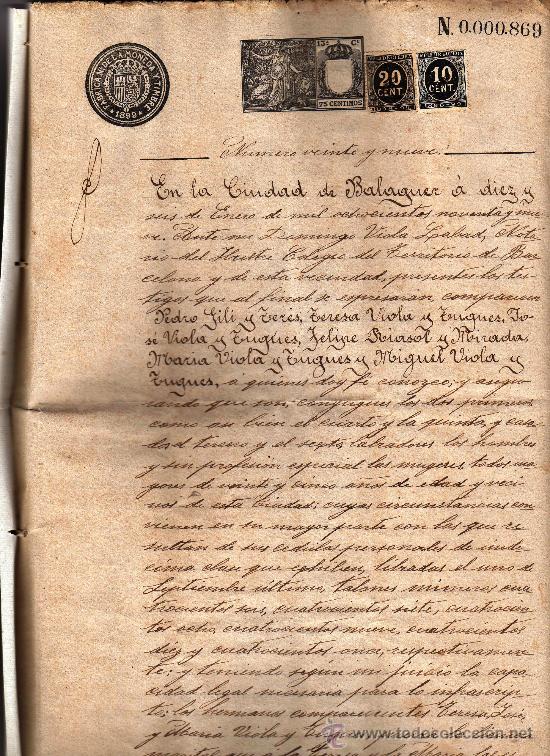 N. 0.000.869
FABRICA NACIONAL DE LA MONEDA Y TIMBRE
1899
75 CENTIMOS
20 CENT.
10 CENT.
Numero veinte y nueve.
En la Ciudad de Balaguer á diez y
seis de Enero de mil ochocientos noventa y nue-
ve. Ante mi Domingo Viola Notа-
rio del Iltre Colegio del Territorio de Bar-
celona y de esta vecindad, presentes los tes-
tigos que al final se espresaran comparecen
Pedro Gili y Terés, Teresa Viola y Tugues, Jo-
sé Viola y Tugues, Felipe Riasol y Mirada,
Maria Viola y Tugues y Miguel Viola y
Tugues, a quienes doy fe conozco; y asegu-
rando que son, conyuges los dos primeros
como asi bien el cuarto y la quinta, y casa-
dos el tercero y el sexto, labradores los hombres
y sin profesion especial las mugeres, todos ma-
yores de veinte y cinco años de edad y veci-
nos de esta Ciudad; cuyas circunstancias con-
vienen en su mayor parte con las que re-
sultan de sus cedulas personales de unde-
cima clase que exhiben, libradas el uno de
Septiembre último, talones números cua-
trocientos seis, cuatrocientos siete, cuatrocien-
tos ocho, cuatrocientos nueve, cuatrocientos
diez y cuatrocientos once, respectivamen-
te; y teniendo según mi juicio la capa-
cidad legal necesaria para lo infrascrip-
to; los hermanos comparecientes Teresa, José,
y Maria Viola y
todocoleccion.net